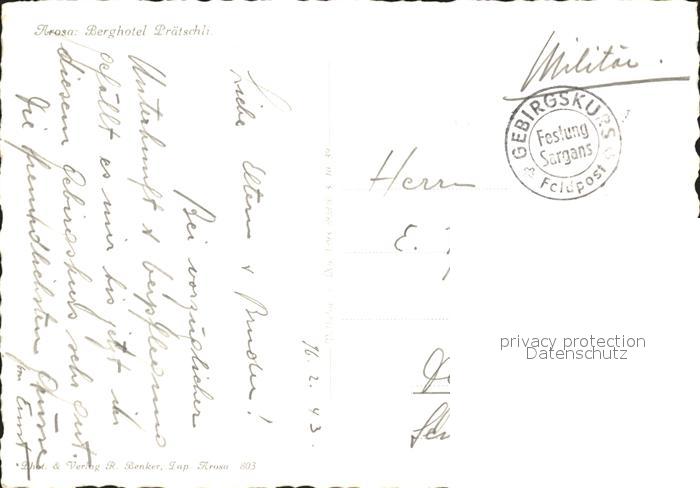 Arosa: Berghotel Prätschli.
Liebe Eltern & Bruder!
Bei vorzüglicher
Unterkunft & Verpflegung
gefällt es mir bis jetzt in
diesem Gebirgskurs sehr gut.
Die freundlichsten Grüsse
Ernst
16.2.43.
Phot. & Verlag R. Benker, Jap. Arosa 803
Militär.
GEBIRGSKURS
Festung
Sargans
Feldpost
Herrn
E.
privacy protection
Datenschutz